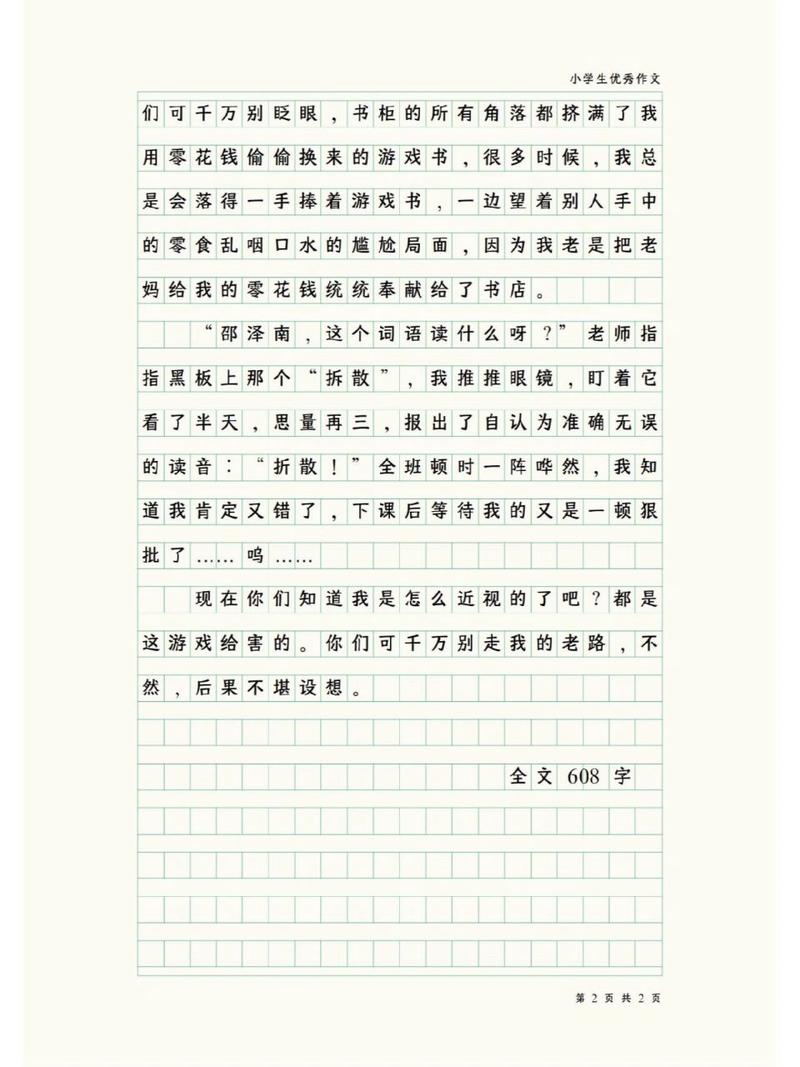 小学生优秀作文
们可千万别眨眼，书柜的所有角落都挤满了我
用零花钱偷偷换来的游戏书，很多时候，我总
是会落得一手捧着游戏书，一边望着别人手中
的零食乱咽口水的尴尬局面，因为我老是把老
妈给我的零花钱统统奉献给了书店。
“邵泽南，这个词语读什么呀？”老师指
指黑板上那个“拆散”，我推推眼镜，盯着它
看了半天，思量再三，报出了自认为准确无误
的读音：“折散！”全班顿时一阵哗然，我知
道我肯定又错了，下课后等待我的又是一顿狠
批了……呜……
现在你们知道我是怎么近视的了吧？都是
这游戏给害的。你们可千万别走我的老路，不
然，后果不堪设想。
全文608字
第 2 页 共 2 页